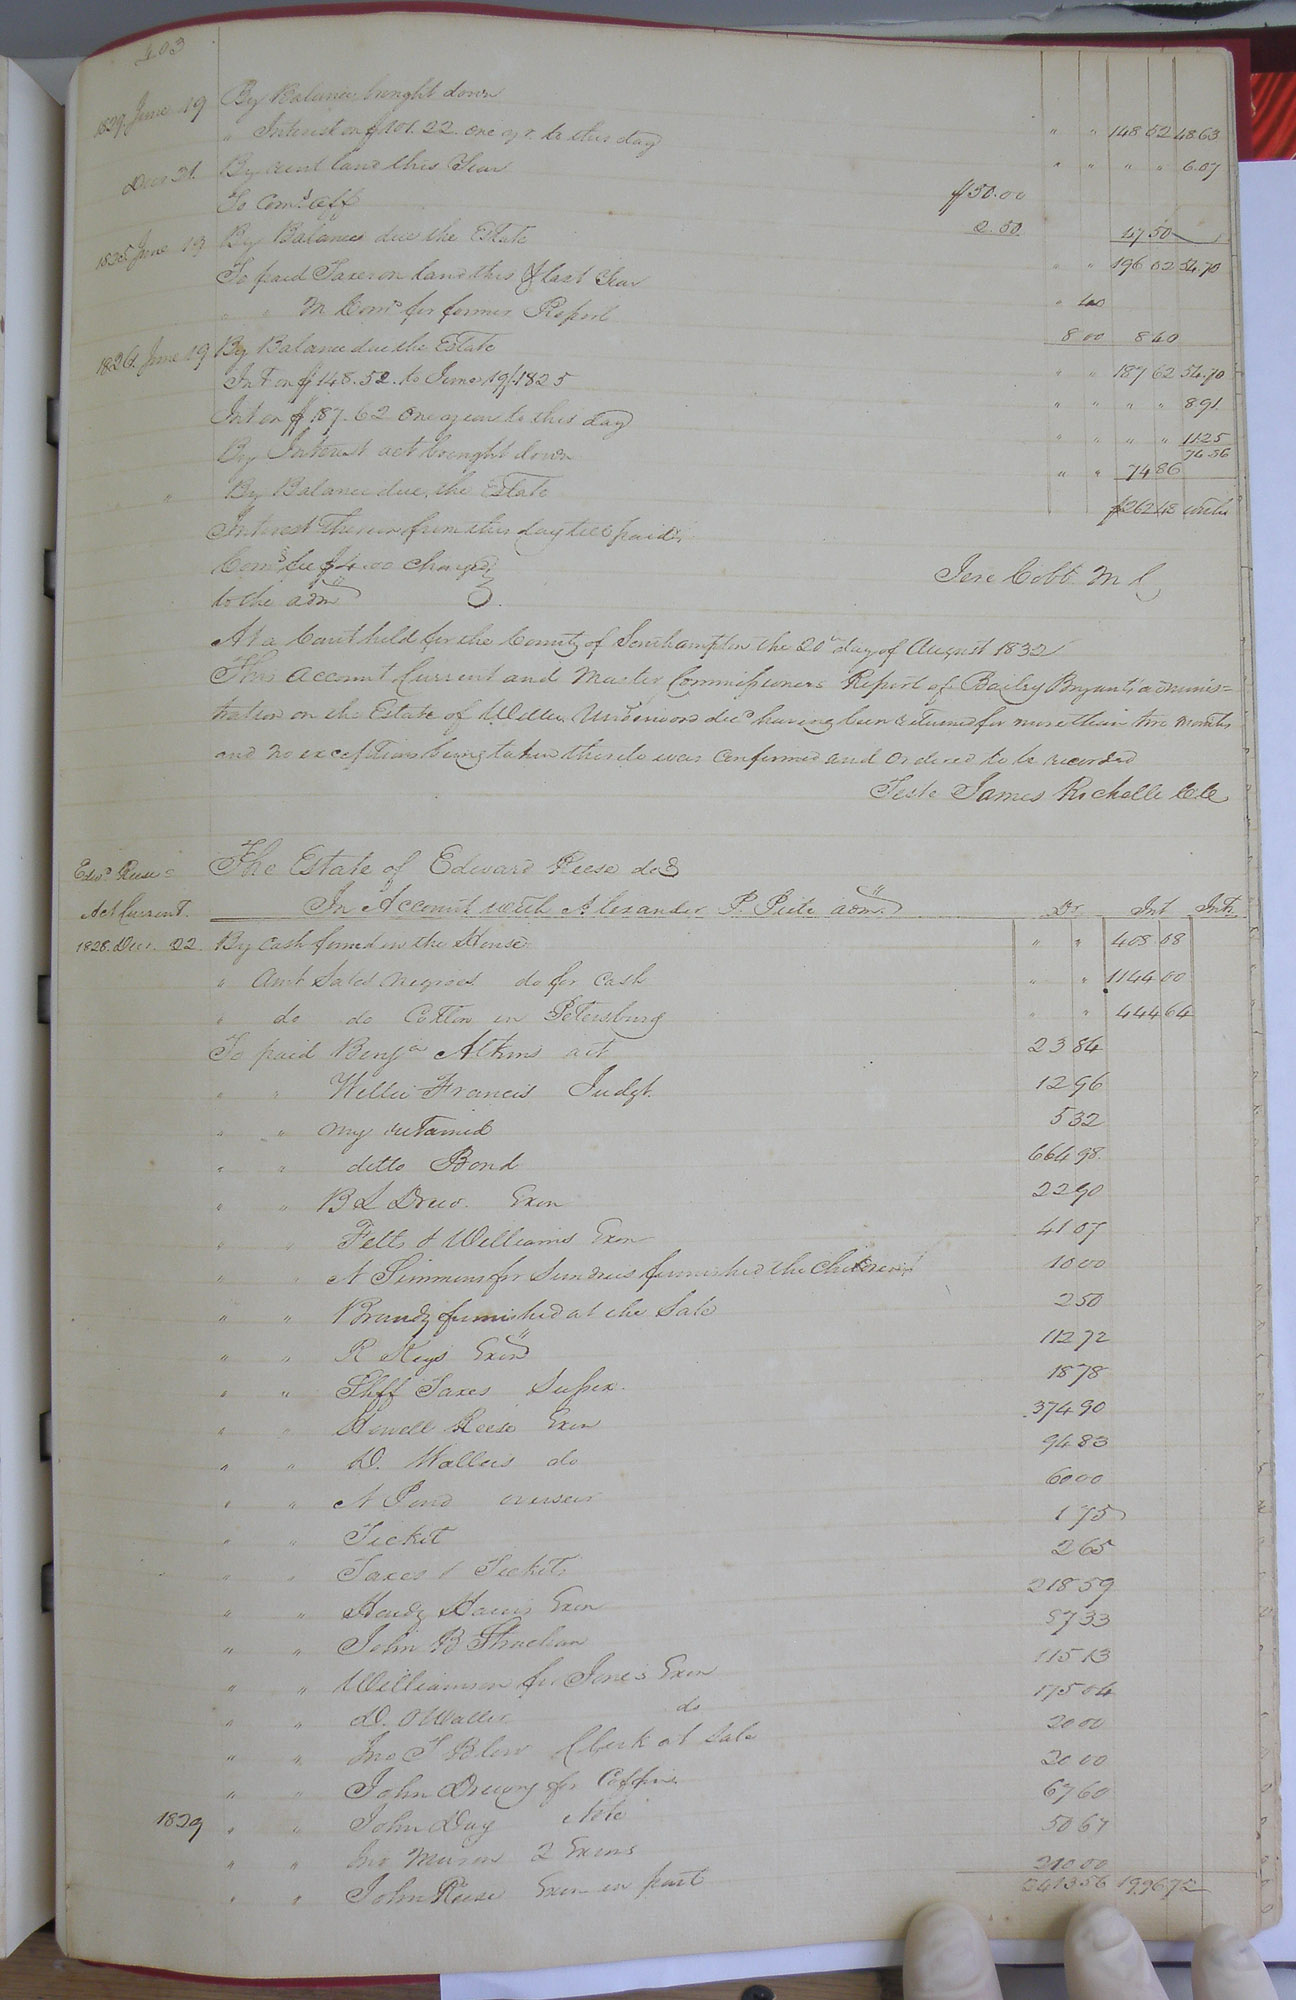 403
1829 June 19 By Balance brought down " " 148 52 48.63
" Interest on $101.22. one yr. to this day " " " " 6.07
Decr 31. By rent land this Year $50.00
To Comrs. aff 2.50 47 50
June 19 By Balance due the Estate " " 196 02 54.70
To paid Taxes on land this & last Year " 40
" " M Comr for former Report 8 00 8 40
1826. June 19 By Balance due the Estate " " 187 62 54.70
Int on $148.52. to June 19/1825 " " " " 8 91
Int on $187.62 One year to this day " " " " 11.25
By Interest act brought down " " 74 86 74.86
" " By Balance due, the Estate $262 48 with
Interest thereon from this day till paid
Coms. fee $4.00 charged
to the admr. Jere Cobb M C
At a Court held for the County of Southampton the 20th day of August 1832
This Account Current and Master Commissioners Report of Bailey Bryants' adminis=
tration on the Estate of Underwood decd having been returned for more than two months
and no exceptions being taken thereto was confirmed and Ordered to be recorded
Teste James Rochelle CC
Edwd. Reese = The Estate of Edward Reese decd
Act Current. In Account with Alexander P. Peete admr. Dr. Int Intr.
1828. Decr. 22 By Cash found in the House " " 408 08
" Amt Sales negroes do for Cash " " 1144 00
" do do Cotton in Petersburg " " 444 64
To paid Benja Atkins act 23 84
" " Willie Francis Judgt. 12 96
" " my retained 5 32
" " ditto Bond 664 98
" " B L Drew. Exon 22 90
" " Felts & Williams Exon 41 07
" " N Simmons for Sundries furnished the Children 10 00
" " Brandy furnished at the Sale 2 50
" " R Keys Exon 112 72
" " Shff Taxes Sussex. 18 78
" " Howell Reese Exon 374 90
" " D. Wallers do 94 83
" " N Pond overseer 60 00
" " Ticket 1 75
" " Taxes & Tickets 2 65
" " Harris Exon 218 59
" " John B Strachan 57 33
" " Williamson for Jones Exon 115 13
" " D. Waller do 175 04
" " Jno T Blow Clerk at Sale 20 00
" " John Drewry for Coffins 20 00
1829 " " John Day Note 67 60
" " Jno Mason 2 Exons 50 67
" " John Reese Exon in part 240 00
2413 56 1996 72